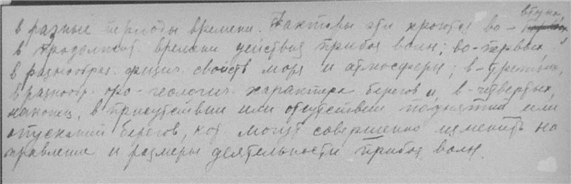 в разные периоды времени. Факторы эти кроются во-
в продолжит. времени действия прибоя волн; во-первых
в разнообраз. физич. свойств моря и атмосферы; в-третьих,
в разнообр. оро-геологич. характера берегов и, в-четвертых,
наконец, в присутствии или отсутствии поднятия или
опускания берегов, кот. могут совершенно изменить на-
правление и размеры деятельности прибоя волн.